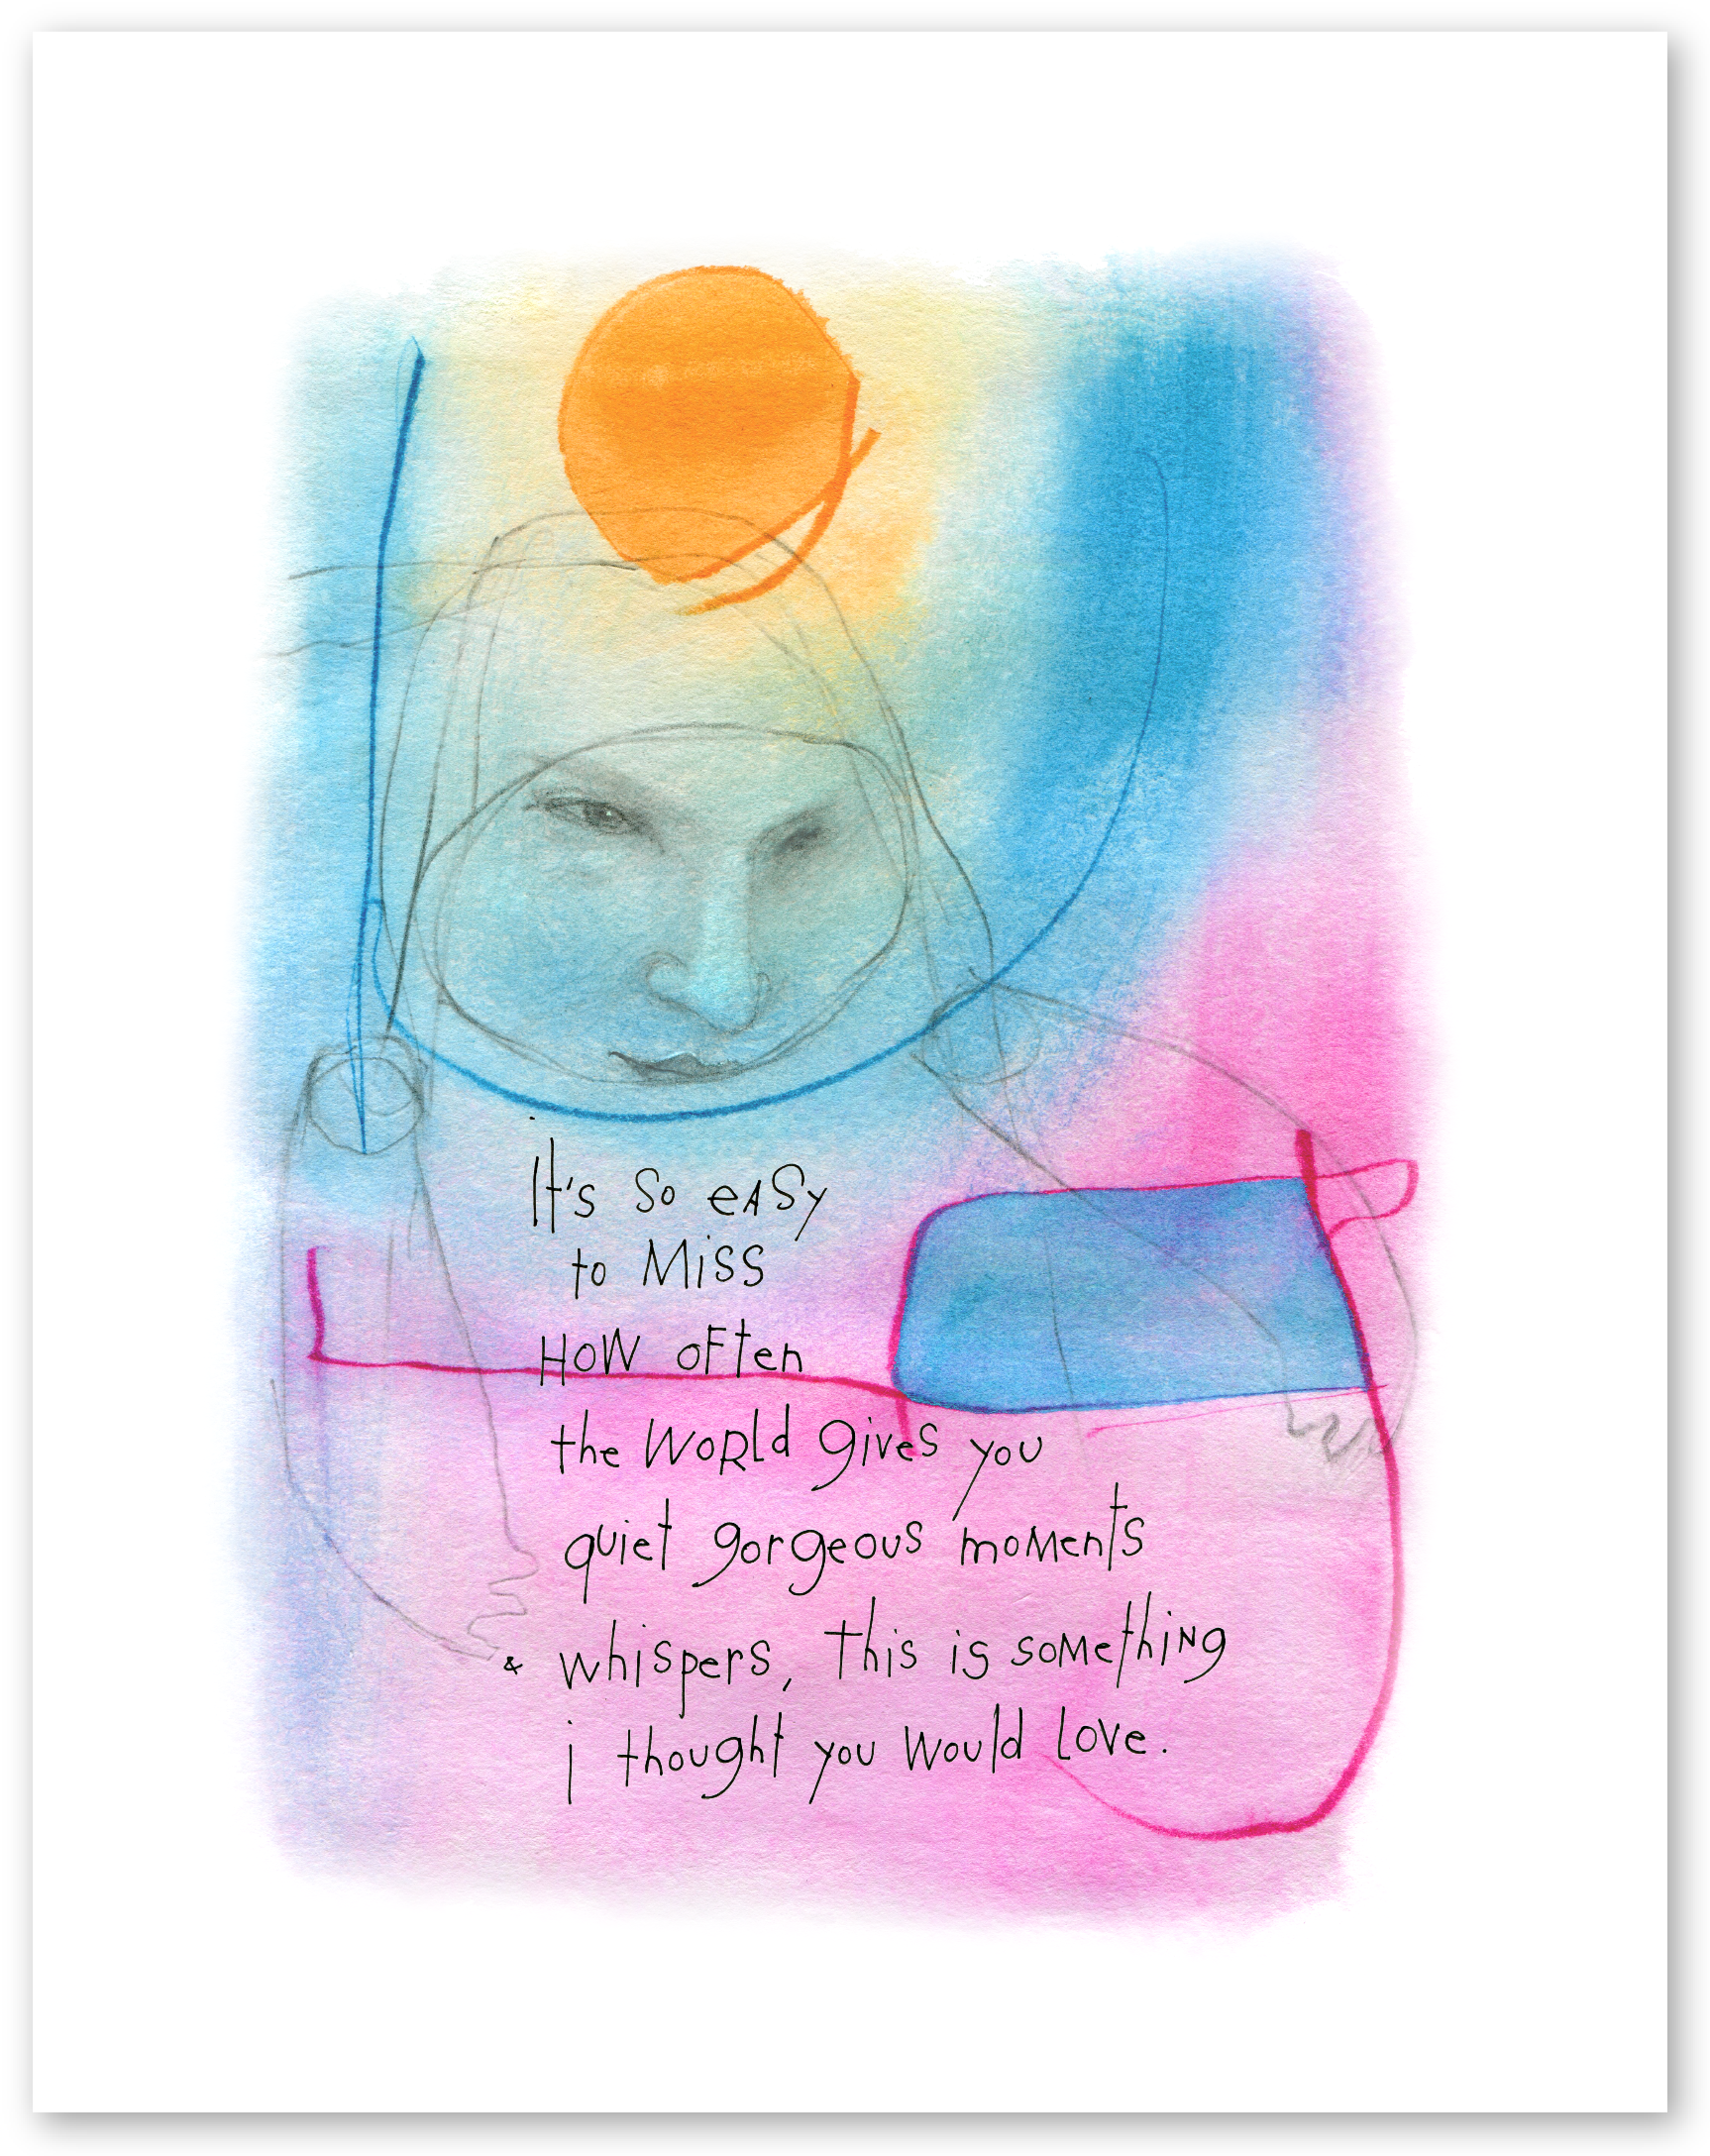 It's so easy
to Miss
How often
the World gives you
quiet gorgeous moments
& whispers, this is something
i thought you would love.